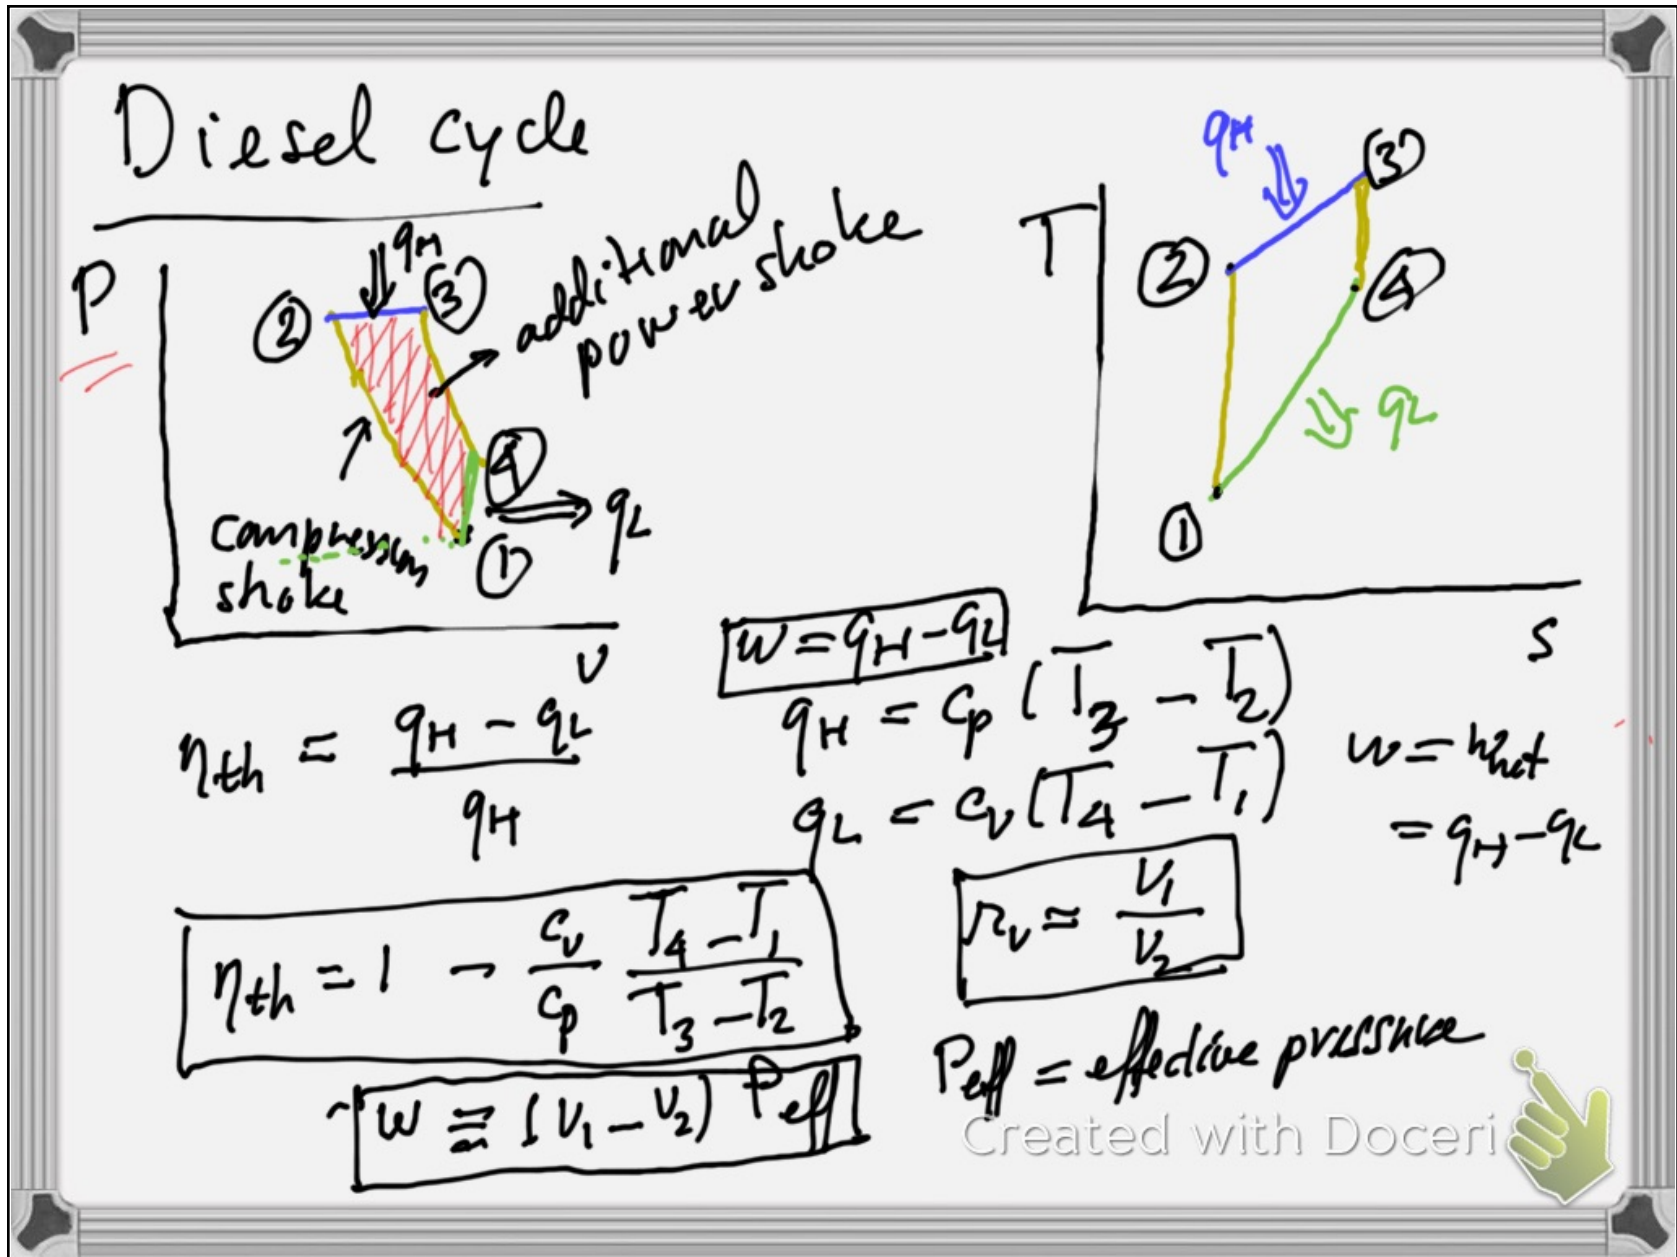 Diesel cycle
P
qH
②
③
additional
power stroke
④
qL
compression
stroke
①
V
T
qH
③
②
④
qL
①
S
w = qH - qL
ηth = (qH - qL) / qH
qH = Cp (T3 - T2)
qL = Cv (T4 - T1)
w = wnet
= qH - qL
ηth = 1 - (Cv / Cp) (T4 - T1) / (T3 - T2)
rv = V1 / V2
w = (V1 - V2) Peff
Peff = effective pressure
Created with Doceri